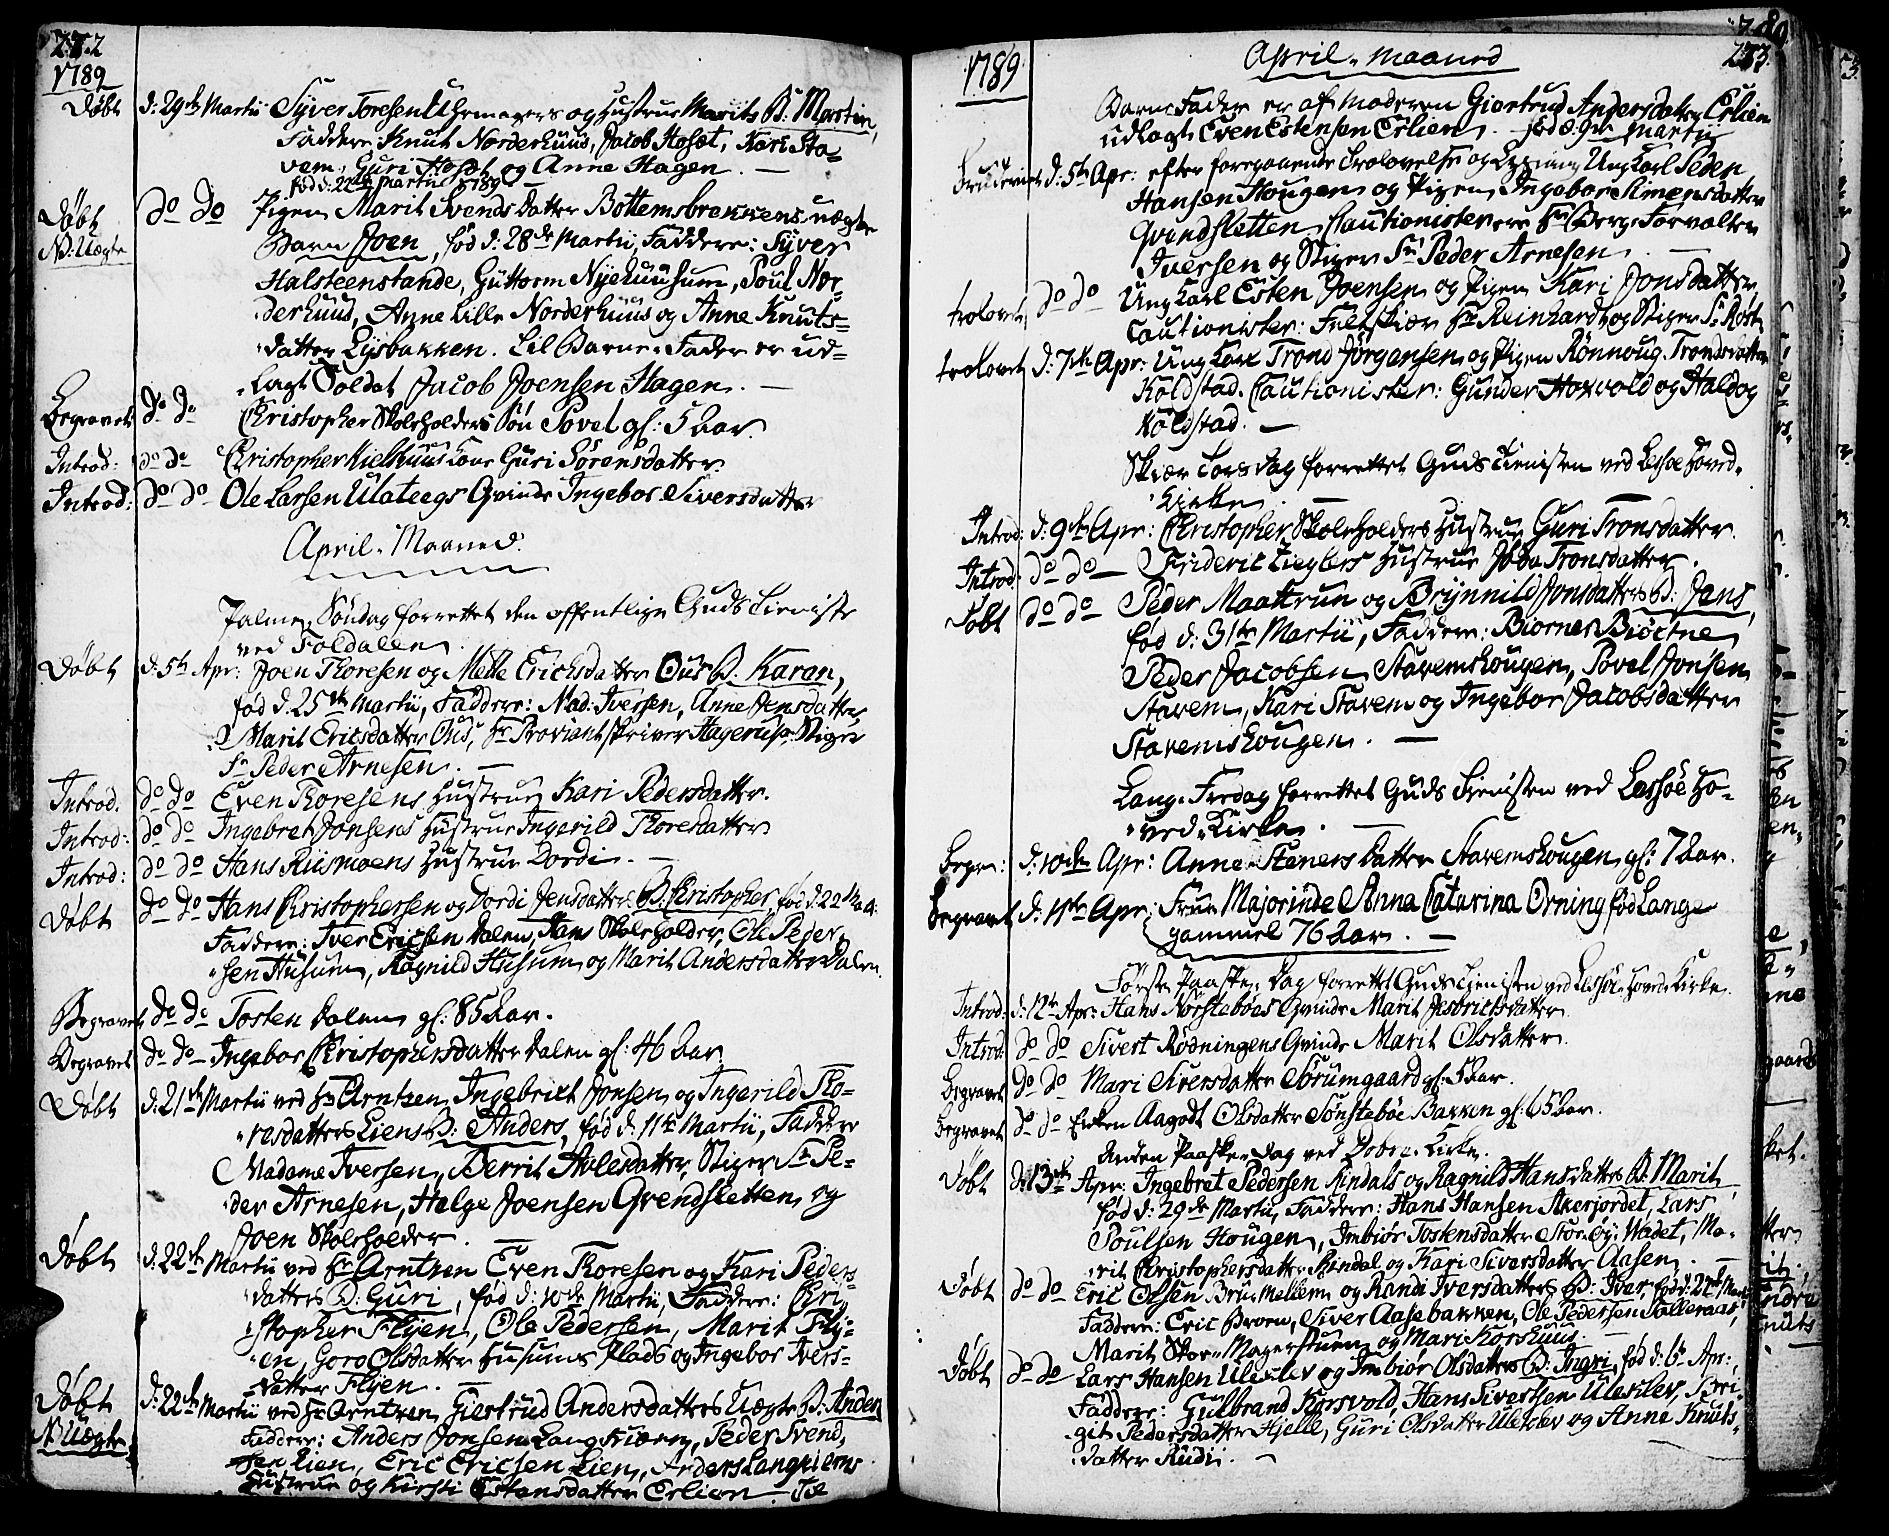 272
1789
Døbt d: 29de Martii Syver Toresen og Hustrue Marits B. Morten,
Faddere Knut Norderhuus, Jacob Hosæt, Kari Sta-
vem, Guri Hosæt og Anne Hagen. —
fød d: 22de Martii 1789
Døbt do do Pigen Marit Svends Datter Bottemsbrekkens uægte
NB: Uægte Barn Joen, fød d: 28de Martii, Faddere: Syver
Halsteenstande, Guttorm Nyehuusum, Poul Nor-
derhuus, Anne Lille Norderhuus og Anne Knuts-
datter Lysbakken. Til Barne-Fader er ud-
lagt Soldat Jacob Joensen Hagen. —
Begravet do do Christopher Skoleholders Søn Povel gl: 5 Aar.
Introd: do do Christopher Kielhuus Kone Guri Sørensdatter.
Introd: do do Ole Larsen Ulateegs Qvinde Ingebor Siversdatter
April-Maaned.
Palme-Søndag forrettet den offentlige Guds Tieniste
ved Foldalen.
Døbt d: 5te Apr: Joen Thoresen og Mette Erichsdatter Ous B. Karan,
fød d. 25de Martii, Faddere: Mad. Iversen, Anne Jensdatter,
Marit Ericsdatter Ous, Hr Proviantskriver Hagerup, Stiger
Sr Peder Arnesen. —
Introd. do do Even Thoresens Hustrue Kari Pedersdatter.
Introd: do do Ingebret Jonsens Hustrue Ingerild Thoresdatter
Introd: do do Hans Riismoens Hustrue Dordi. —
Døbt do do Hans Christophersen og Dordi Jensdatters B. Christopher, fød d: 22 Mar.
Faddere: Iver Ericsen Dalen, Jan Skoleholder, Ole Peder-
sen Husum, Ragnild Husum og Marit Andersdatter Dalen.
Begravet do do Tosten Dalen gl: 85 Aar.
Begravet do do Ingebor Christophersdatter Dalen gl: 46 Aar
Døbt d: 21de Martii ved Hr Arntzen Ingebrict Jonsen og Ingerild Tho-
resdatters Liens B: Anders, fød d: 11te Martii, Faddere
Madame Iversen, Berrit Avlesdatter, Stiger Sr Pe-
der Arnesen, Helge Joensen Qvendsletten, og
Joen Skoleholder. —
Døbt d: 22de Martii ved Hr Arntzen Even Thoresen og Kari Peders-
datters B: Guri, fød d: 10de Martii, Faddere: Chri-
stopher Flyen, Ole Pedersen, Marit Fly-
en, Goro Olsdatter Husums Plads og Ingebor Ivers-
datter Flyen. —
Døbt d: 22de Martii ved Hr Arntzen Giertrud Andersdatters Uægte B: Anders
NB Uægte Faddere: Anders Jonsen Langkiærn, Peder Svend-
sen Lien, Eric Ericsen Lien, Anders Langkierns
Hustrue og Kirsti Estensdatter Erlien. Til
273
1789 April-Maaned
Barne Fader er af Moderen Giertrud Andersdatter Erlien
udlagt Even Estensen Erlien. — fød d. 9de Martii
Brudeviet d: 5te Apr: efter foregaaende Trolovelse og Lysning Ung Karl Peder
Hansen Hougen og Pigen Ingebor Simensdatter
Qvindsletten Cautionister ere Hr Berg-Forvalter
Iversen og Stiger Sr Peder Arnesen. —
trolovet do do Ung Karl Esten Joensen og Pigen Kari Jonsdatter,
Cautionister: Feltskiær Hr Reinhardt og Stiger Sr Røst
trolovet d: 7de Apr: Ung Karl Trond Jørgensen og Pigen Rønnoug Trondsdatter
Koldstad. Cautionister: Gunder Horvold og Haldog
Koldstad. —
Skiær Torsdag forrettet Guds Tienisten ved Lessøe Hoved-
Kirke. —
Introd: d: 9de Apr: Christopher Skoleholders Hustrue Guri Tronsdatter.
Introd: do do — Friderik Zieglers Hustrue Ebba Tronsdatter.
Døbt do do Peder Maattrun og Brynnild Jonsdatters B: Jens,
fød d: 31te Martii, Faddere: Biørner Biøctne
Peder Jacobsen Stavemshougen, Povel Jonsen
Stavem, Kari Stavem og Ingebor Jacobsdatter
Stavemshougen. —
Lang-Fredag forrettet Guds Tienisten ved Lessøe Ho-
ved-Kirke. —
Begr: d: 10de Apr: Anne Steners Datter Stavemshougen gl: 7 Aar.
Begravet d: 11te Apr: Frue Majorinde Anna Catarina Orning fød Lange
gammel 76 Aar. —
Første Paaske-Dag forrettet Guds Tienisten ved Lessøe Hoved Kirke.
Introd: d: 12te Apr: Hans Norsteboes Qvinde Marit Jesbrichsdatter.
Introd: do do Sivert Rødningens Qvinde Marit Olsdatter.
Begravet do do Mari Siversdatter Sørumgaard gl: 5 Aar.
Begravet do do Enken Aagodt Olsdatter Sønsteboe Bakken gl: 65 Aar.
Anden Paaske-Dag ved Dovre-Kirke.
Døbt d: 13de Apr: Ingebret Pedersen Rindals og Ragnild Hansdatters B: Marit
fød d: 29de Martii, Faddere: Hans Hansen Akerjordet, Lars
Poulsen Hougen, Imbiør Tostensdatter Store Øy-Wadet, Ma-
rit Christophersdatter Rindal og Kari Siversdatter Aasen. —
Døbt do do Eric Olsen Bruu Mellem og Randi Iversdatters B: Iver, fød d: 22de Martii
Faddere: Eric Broen, Siver Aasebakken, Ole Pedersen Tolleraas,
Marit Stor-Magerstuen og Mari Korshuus. —
Døbt do do Lars Hansen Uleklev og Imbiør Olsdatters B: Ingri, fød d: 6te Apr:,
Faddere: Gulbrand Korsvold, Hans Sivertsen Uleklev, Bri-
git Pedersdatter Hjelle, Guri Olsdatter Uleklev og Anne Knuts-
datter Rudii. —